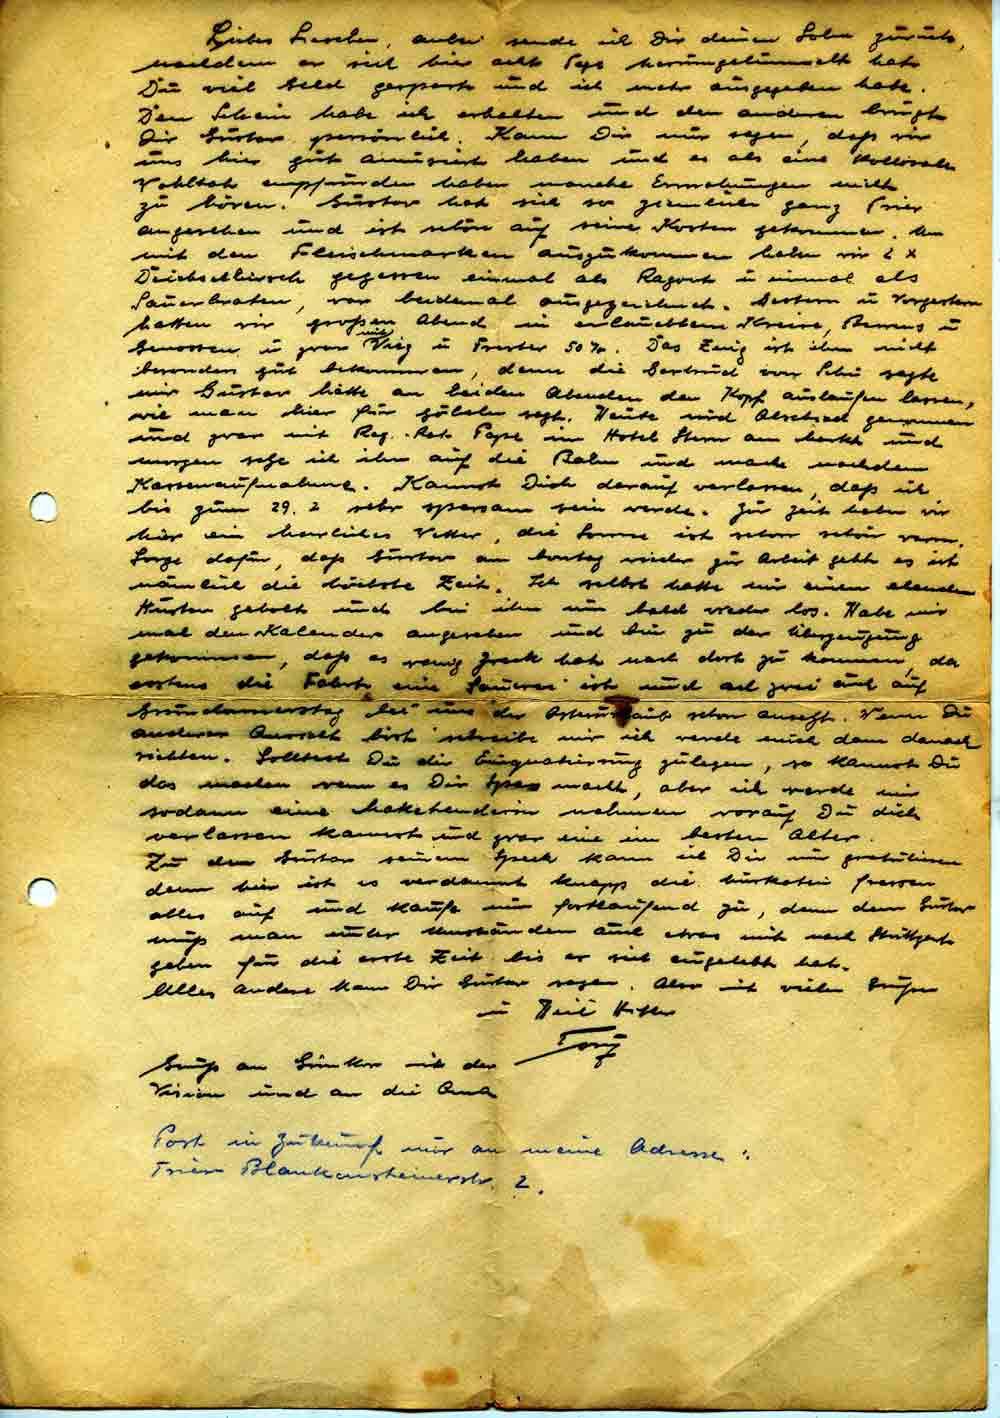 Liebes Lieschen, anbei sende ich Dir deinen Sohn zurück,
nachdem er sich hier acht Tage herumgetummelt hat
Du viel Geld gespart und ich mehr ausgegeben habe.
Den Schein habe ich erhalten und den anderen bringt
Dir Gustav persönlich. Kann Dir nur sagen, daß wir
uns hier gut amüsiert haben und es als eine kollosale
Wohltat empfunden haben manche Ermahnungen nicht
zu hören. Gustav hat sich so ziemlich ganz Trier
angesehen und ist schön auf seine Kosten gekommen. Um
mit den Fleischmarken auszukommen haben wir 2 x
gegessen einmal als Ragout u einmal als
Sauerbraten, war beidemal ausgezeichnet. Gestern u Vorgestern
hatten wir großen Abend in erlauchtem Kreise, Berens u
Genossen u zwar mit Viez u Trester 50%. Das Zeug ist ihm nicht
besonders gut bekommen, denn die Gertrud von Schü sagte
mir Gustav hätte an beiden Abenden den Kopf auslaufen lassen,
wie man hier für sagt. Heute wird Abschied genommen
und zwar mit Reg.-Rat Pape im Hotel Stern am Markt und
morgen setze ich ihn auf die Bahn und mache nachdem
Kassenaufnahme. Kannst Dich darauf verlassen, daß ich
bis zum 29. 2 sehr sparsam sein werde. Zur Zeit haben wir
hier ein herrliches Wetter, die Sonne ist schon schön warm.
Sorge dafür, daß Gustav am Montag wieder zur Arbeit geht es ist
nämlich die höchste Zeit. Ich selbst hatte mir einen elenden
Husten geholt und bin ihn nun bald wieder los. Habe mir
mal den Kalender angesehen und bin zu der Überzeugung
gekommen, daß es wenig Zweck hat nach dort zu kommen, da
erstens die Fahrt eine Sauerei ist und zwei auf
Gründonnerstag bei uns der Osterurlaub schon anfängt. Wenn Du
anderer Ansicht bist schreibe mir ich werde mich dann danach
richten. Solltest Du dir Einquatierung zulegen, so kannst Du
das machen wenn es Dir Spass macht, aber ich werde mir
sodann eine Maketenderin nehmen worauf Du dich
verlassen kannst und zwar eine im besten Alter.
Zu dem Gustav seinem Speck kann ich Dir nur gratulieren
denn hier ist es verdammt knapp die fressen
alles auf und kaufe nur fortlaufend zu, denn dem Gustav
muß man unter Umständen auch etwas mit nach Stuttgart
geben für die erste Zeit bis er sich eingelebt hat.
Alles andere kann Dir Gustav sagen. Also mit vielen Grüßen
u Heil Hitler
Tony
Gruß an mit der
Vision und an die Oma
Post in Zukunft nur an meine Adresse:
Trier Blankensteinerstr. 2.